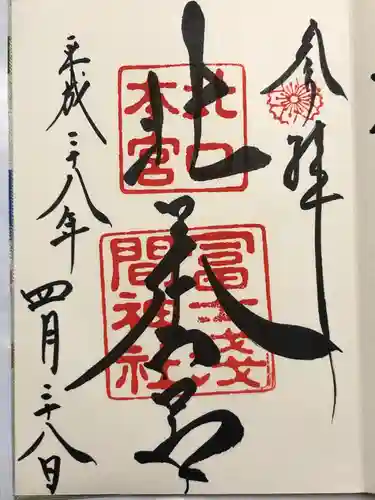 奉拝
北口本宮
北口
本宮
冨士淺
間神社
平成二十八年
四月二十八日